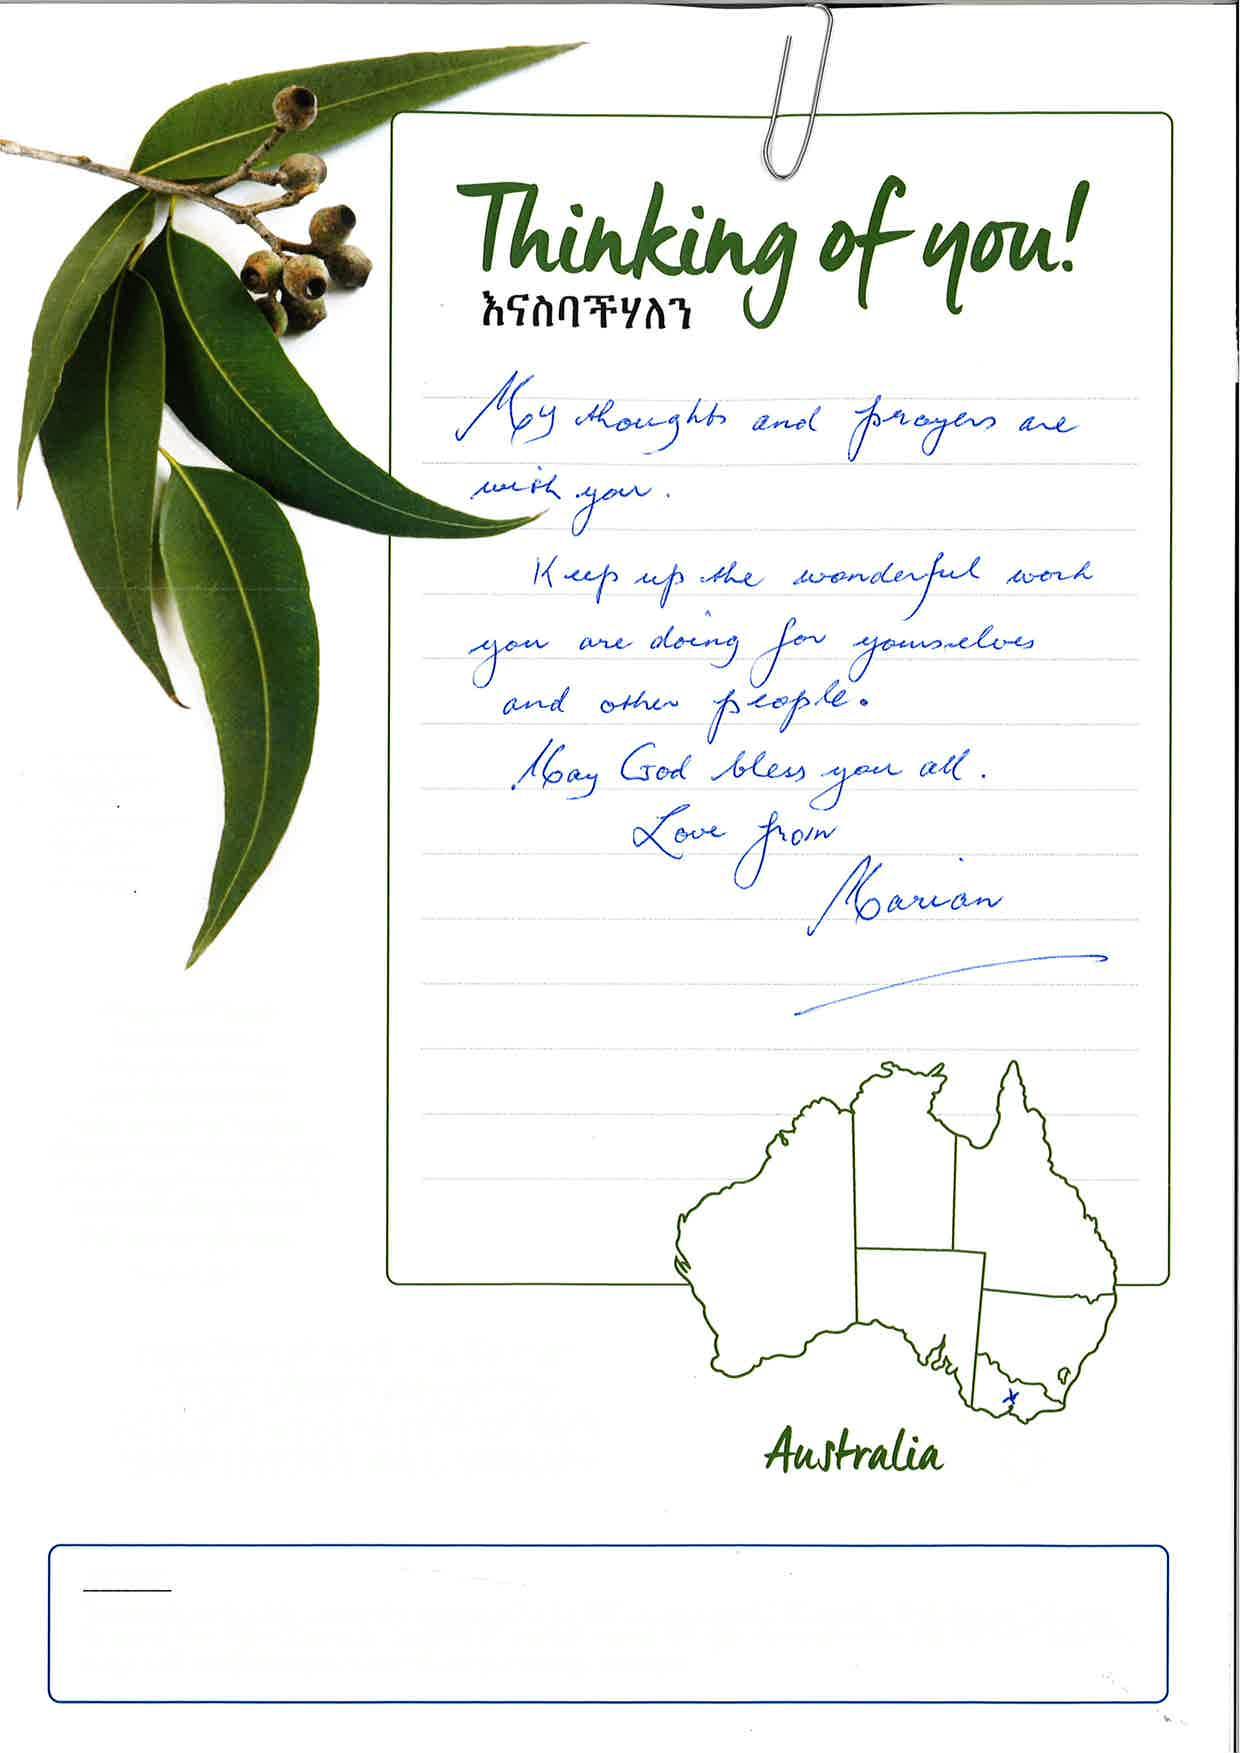 Thinking of you!
እናስባችሃለን
My thoughts and prayers are
with you.
Keep up the wonderful work
you are doing for yourselves
and other people.
May God bless you all.
Love from
Marian
x
Australia